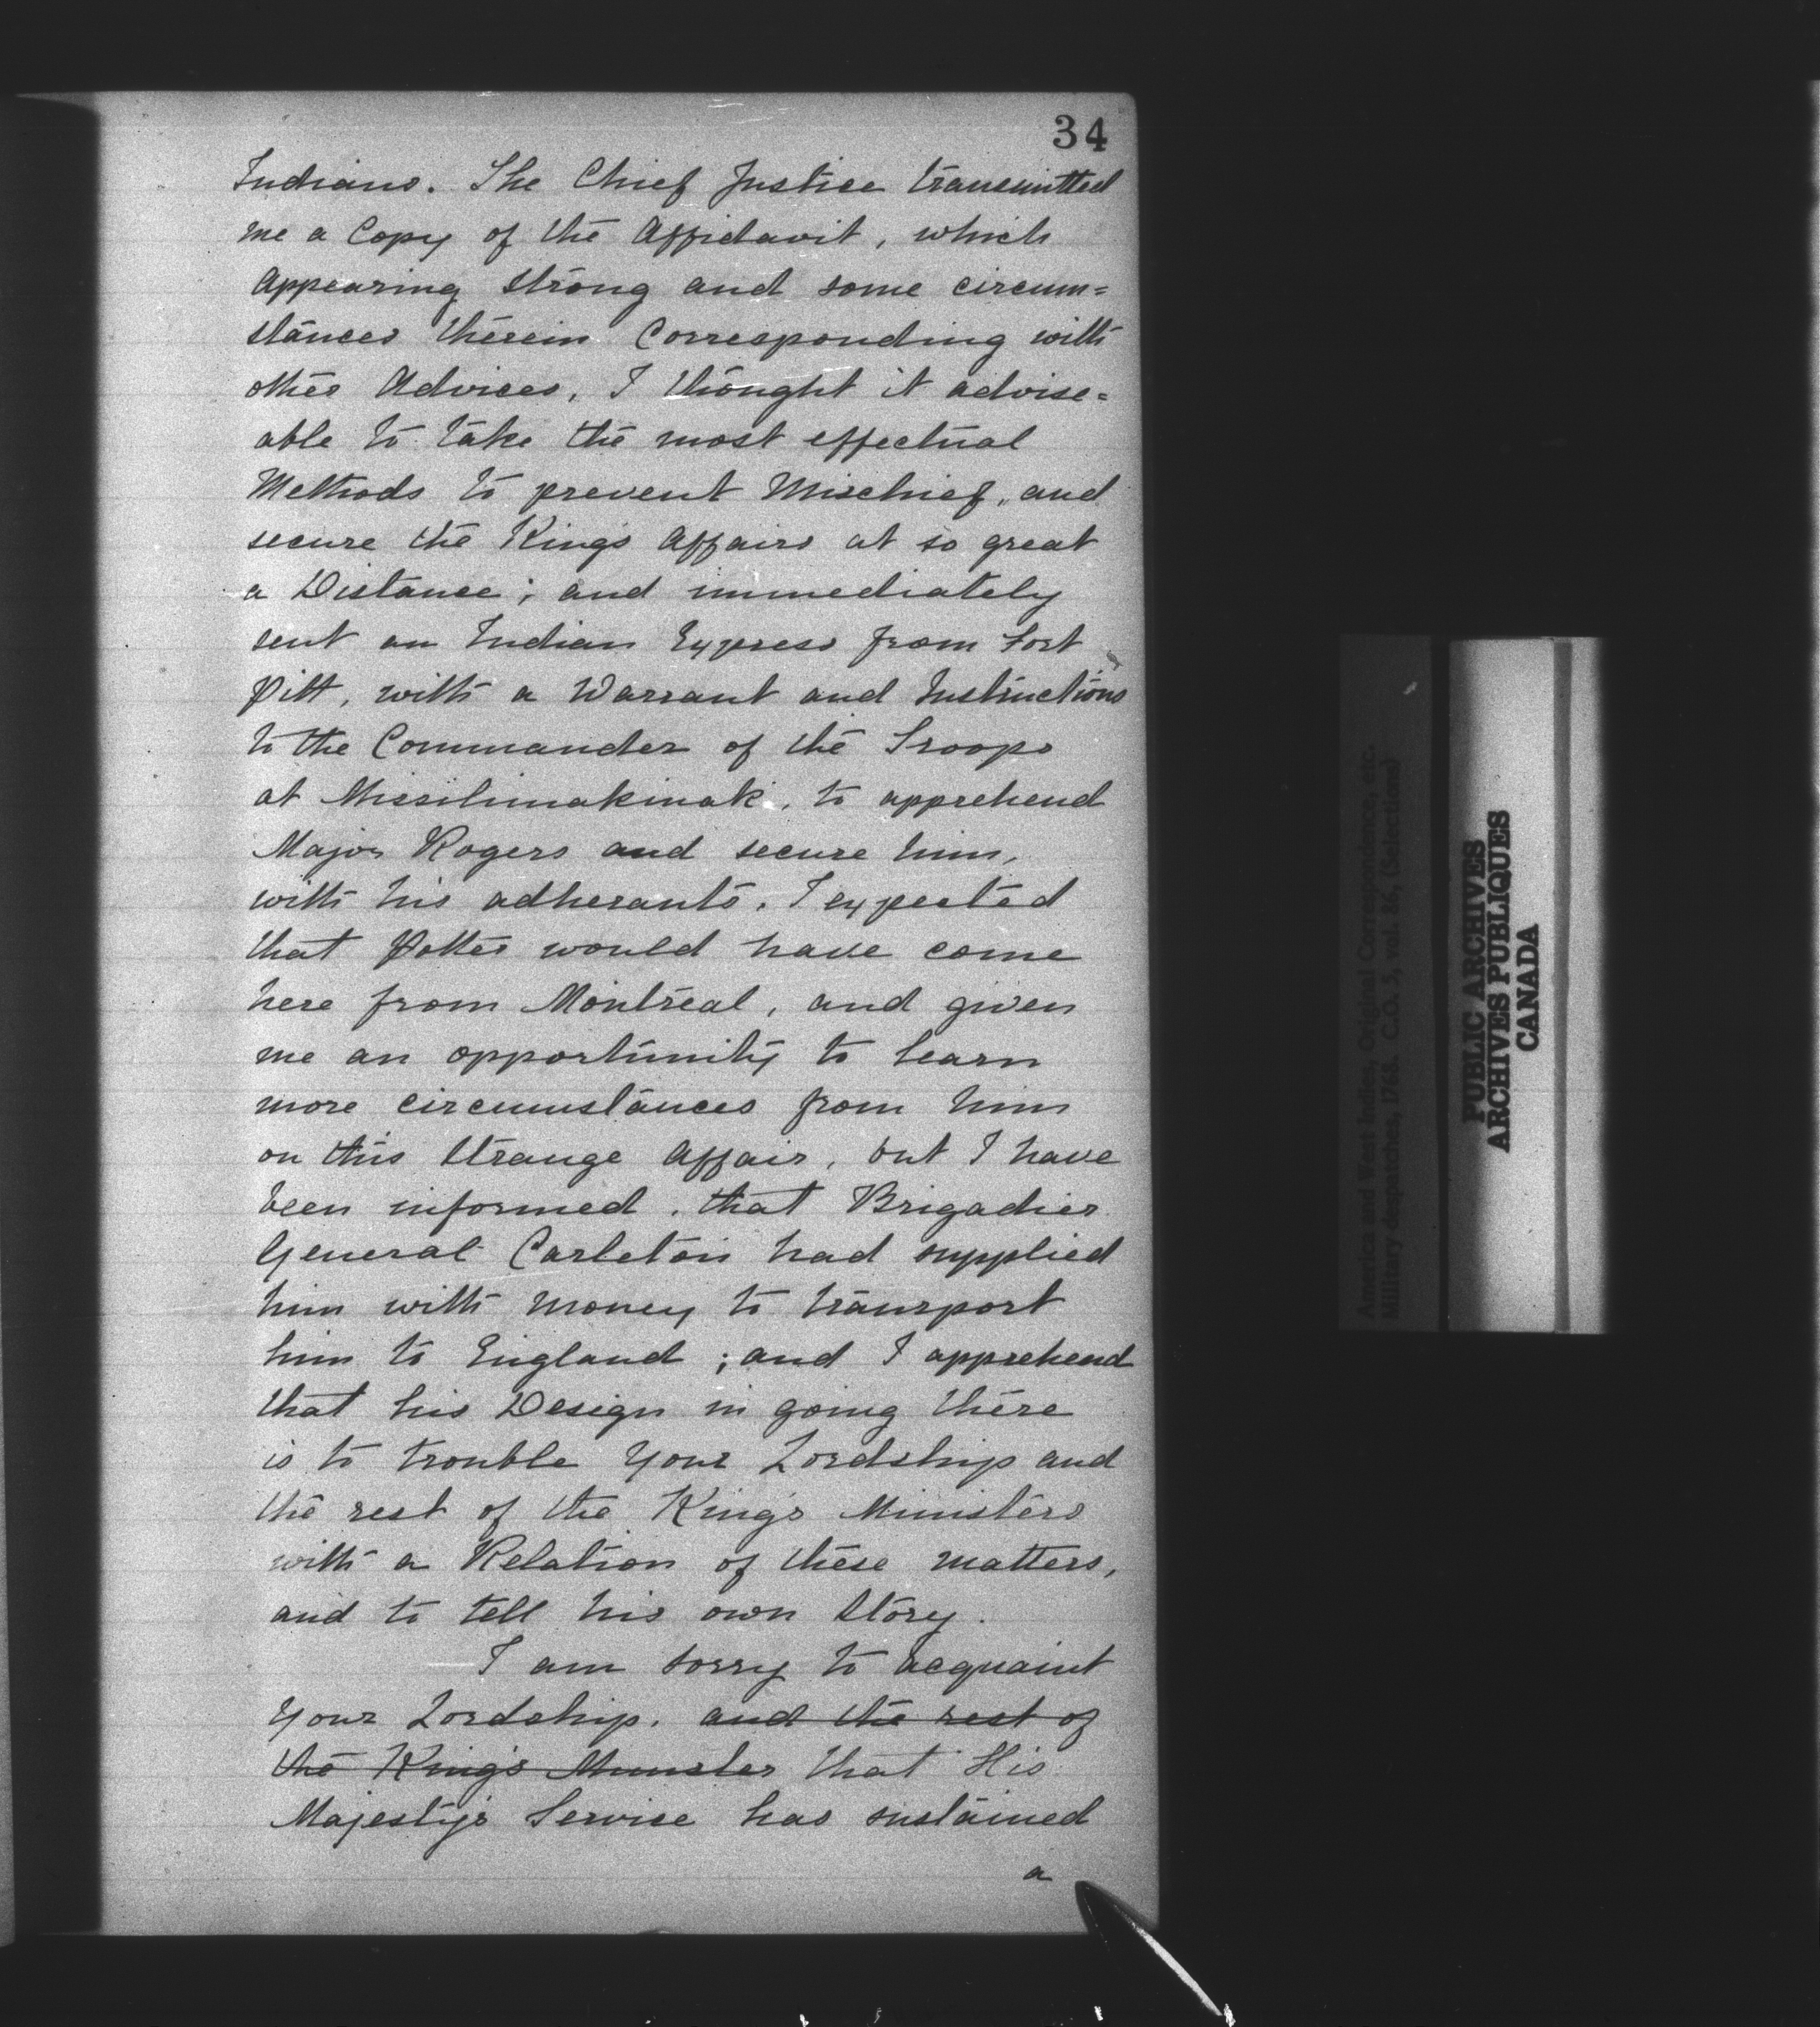 34
Indians. The Chief Justice transmitted
me a Copy of the Affidavit, which
Appearing strong and some circum=
stances therein Corresponding with
other Advices, I thought it advise=
able to take the most effectual
Methods to prevent Mischief, and
secure the King's Affairs at so great
a Distance; and immediately
sent an Indian Express from Fort
Pitt, with a Warrant and Instructions
to the Commander of the Troops
at Missilimakinak, to apprehend
Major Rogers and secure him,
with his adherants. I expected
that Potter would have come
here from Montreal, and given
me an opportunity to learn
more circumstances from him
on this strange Affair, but I have
been informed, that Brigadier
General Carleton had supplied
him with money to transport
him to England; and I apprehend
that his Design in going there
is to trouble Your Lordship and
the rest of the King's Ministers
with a Relation of these matters,
and to tell his own story.
I am sorry to acquaint
Your Lordship. and the rest of
the King's Minister that His
Majesty's Service has sustained
a
America and West Indies, Original Correspondence, etc.
Military despatches, 1768. C.O. 5, vol. 86, (Selections)
PUBLIC ARCHIVES
ARCHIVES PUBLIQUES
CANADA